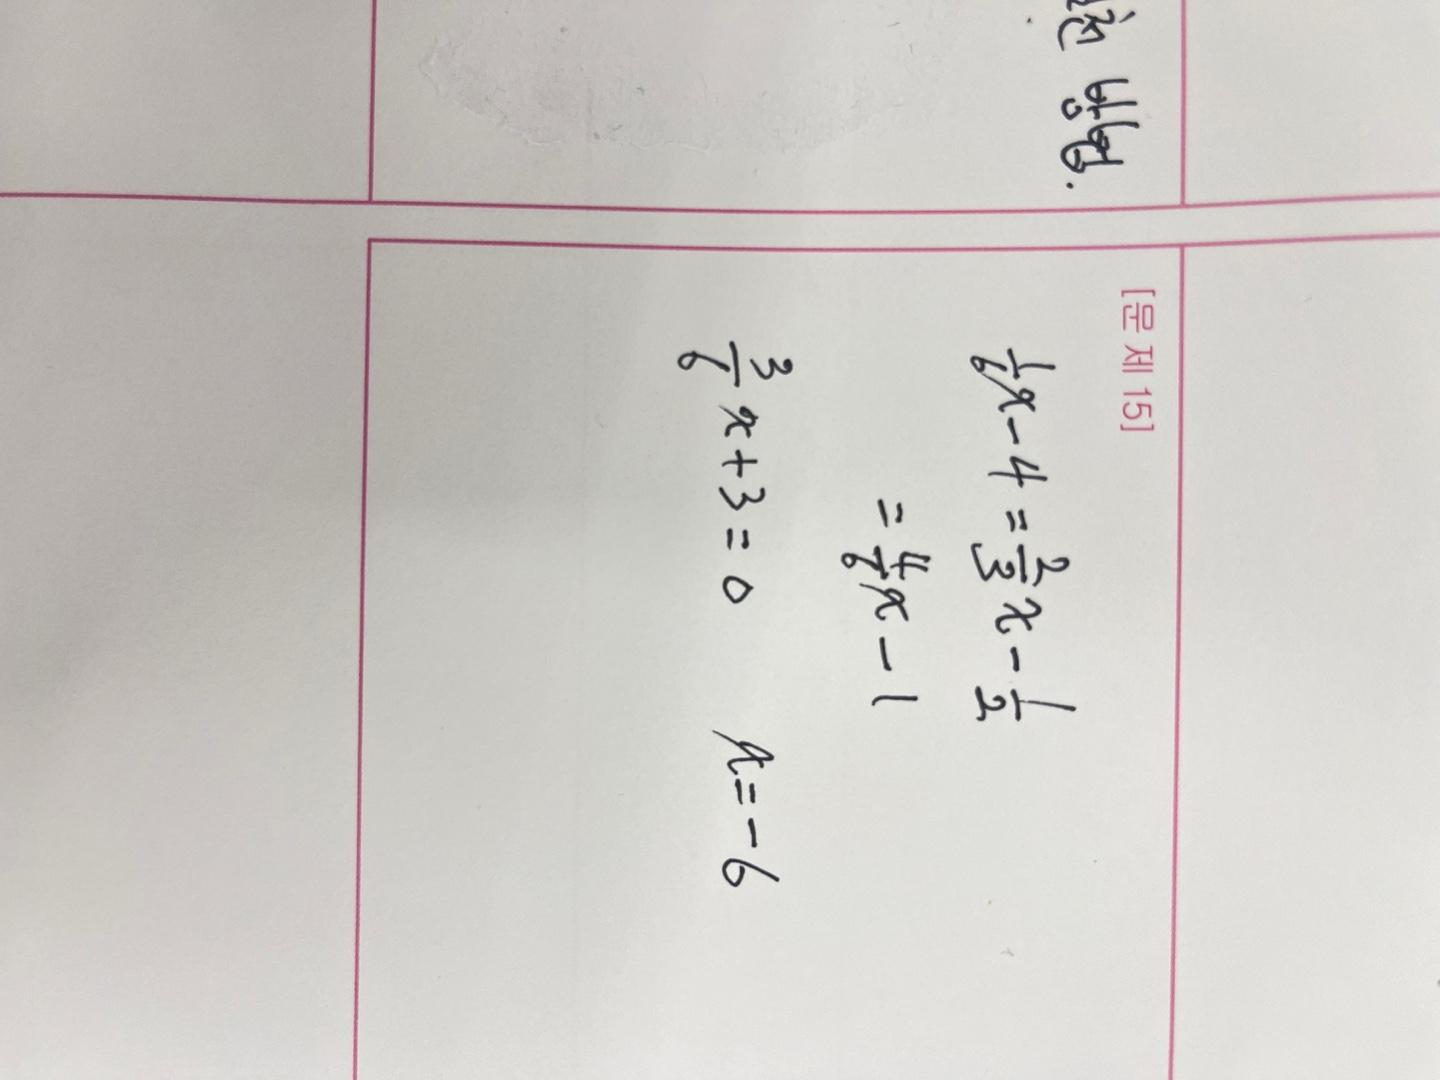 방법.
[문제 15]
1/6 x - 4 = 2/3 x - 1/2
= 4/6 x - 1
3/6 x + 3 = 0 x = -6